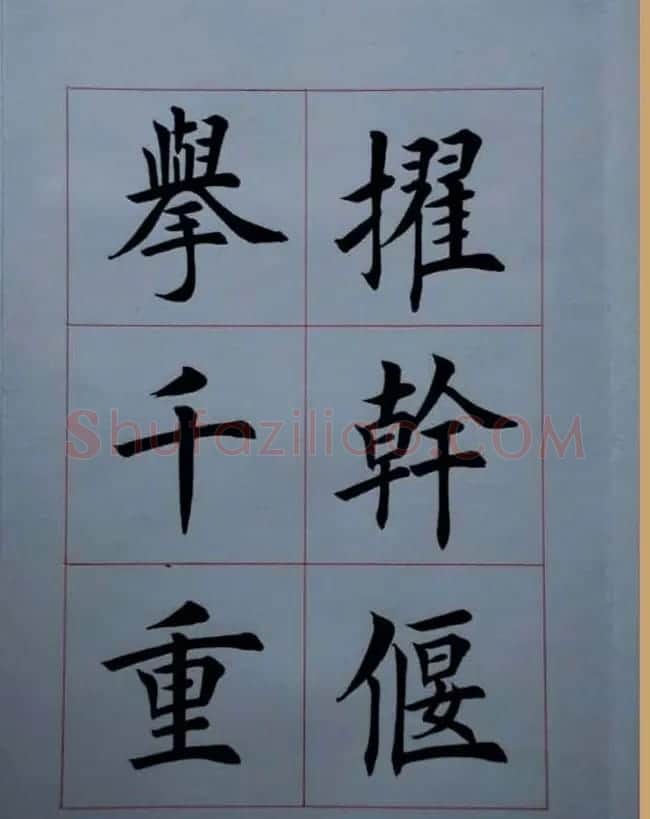 擢幹偃
舉千重
Shufaziliao.COM